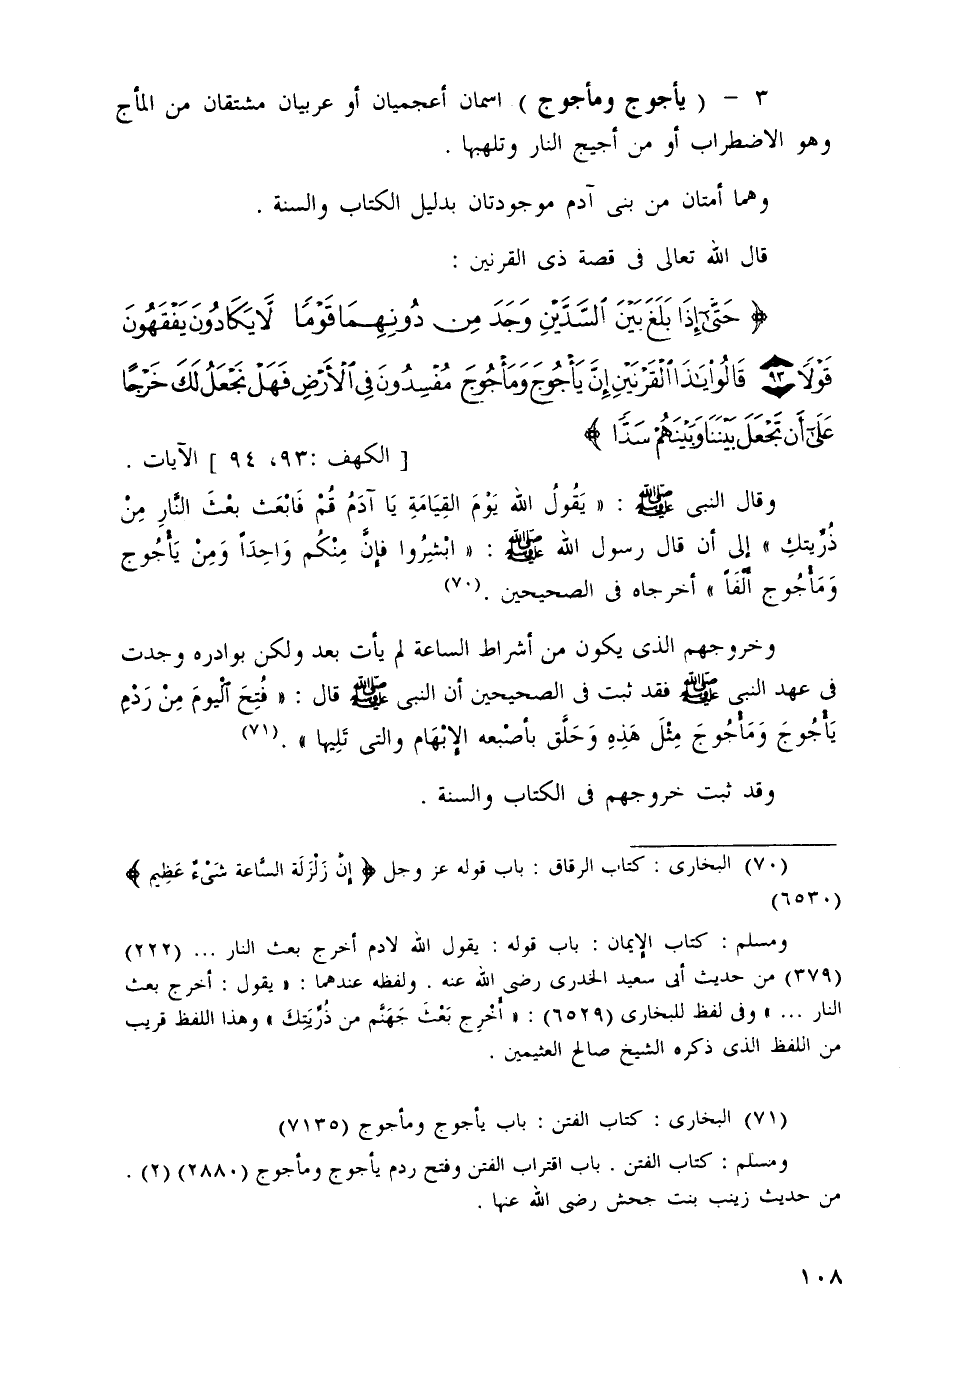 ٣ - ( يأجوج ومأجوج ) اسمان أعجميان أو عربيان مشتقان من المأج
وهو الاضطراب أو من أجيج النار وتلهبها .
وهما أمتان من بنى آدم موجودتان بدليل الكتاب والسنة .
قال الله تعالى فى قصة ذى القرنين :
﴿ حَتَّىٰٓ إِذَا بَلَغَ بَيْنَ ٱلسَّدَّيْنِ وَجَدَ مِن دُونِهِمَا قَوْمًا لَّا يَكَادُونَ يَفْقَهُونَ
قَوْلًا ٩٣ قَالُوا۟ يَٰذَا ٱلْقَرْنَيْنِ إِنَّ يَأْجُوجَ وَمَأْجُوجَ مُفْسِدُونَ فِى ٱلْأَرْضِ فَهَلْ نَجْعَلُ لَكَ خَرْجًا
عَلَىٰٓ أَن تَجْعَلَ بَيْنَنَا وَبَيْنَهُمْ سَدًّا ﴾
[ الكهف :٩٣، ٩٤ ] الآيات .
وقال النبى ﷺ : « يَقُولُ الله يَوْمَ القِيَامَةِ يَا آدَمُ قُمْ فَابْعَث بعْثَ النَّارِ مِنْ
ذُرِّيتكِ » إلى أن قال رسول الله ﷺ : « ابْشِرُوا فإنَّ مِنْكُم وَاحِدَاً وَمِنْ يَأْجُوج
وَمَأْجُوج ألْفَاً » أخرجاه فى الصحيحين .(٧٠)
وخروجهم الذى يكون من أشراط الساعة لم يأت بعد ولكن بوادره وجدت
فى عهد النبى ﷺ فقد ثبت فى الصحيحين أن النبى ﷺ قال : « فُتِحَ الْيومَ مِنْ رَدْمِ
يَأْجُوجَ وَمَأْجُوجَ مِثْلَ هَذِهِ وَحَلَّق بأصْبعه الإبْهَام والتى تَلِيها » .(٧١)
وقد ثبت خروجهم فى الكتاب والسنة .
(٧٠) البخارى : كتاب الرقاق : باب قوله عز وجل ﴿ إنّ زَلْزَلَة السَّاعة شَىْءٌ عَظِيم ﴾
(٦٥٣٠)
ومسلم : كتاب الإيمان : باب قوله : يقول الله لادم أخرج بعث النار ... (٢٢٢)
(٣٧٩) من حديث أبى سعيد الخدرى رضى الله عنه . ولفظه عندهما : « يقول : أخرج بعث
النار ... » وفى لفظ للبخارى (٦٥٢٩) : « أَخْرِج بَعْثَ جَهَنَّم من ذُرِّيَتِكَ » وهذا اللفظ قريب
من اللفظ الذى ذكره الشيخ صالح العثيمين .
(٧١) البخارى : كتاب الفتن : باب يأجوج ومأجوج (٧١٣٥)
ومسلم : كتاب الفتن . باب اقتراب الفتن وفتح ردم يأجوج ومأجوج (٢٨٨٠) (٢) .
من حديث زينب بنت جحش رضى الله عنها .
١٠٨